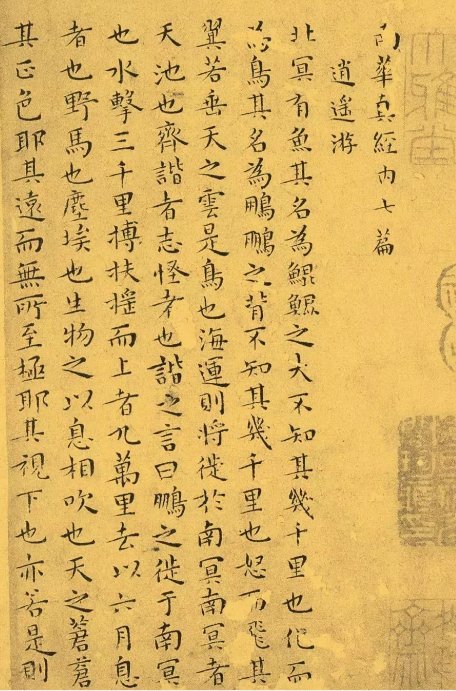 南華真經内七篇
逍遙游
北冥有魚其名為鯤鯤之大不知其幾千里也化而
為鳥其名為鵬鵬之背不知其幾千里也怒而飛其
翼若垂天之雲是鳥也海運則將徙於南冥南冥者
天池也齊諧者志怪者也諧之言曰鵬之徙于南冥
也水擊三千里搏扶搖而上者九萬里去以六月息
者也野馬也塵埃也生物之以息相吹也天之蒼蒼
其正色耶其遠而無所至極耶其視下也亦若是則